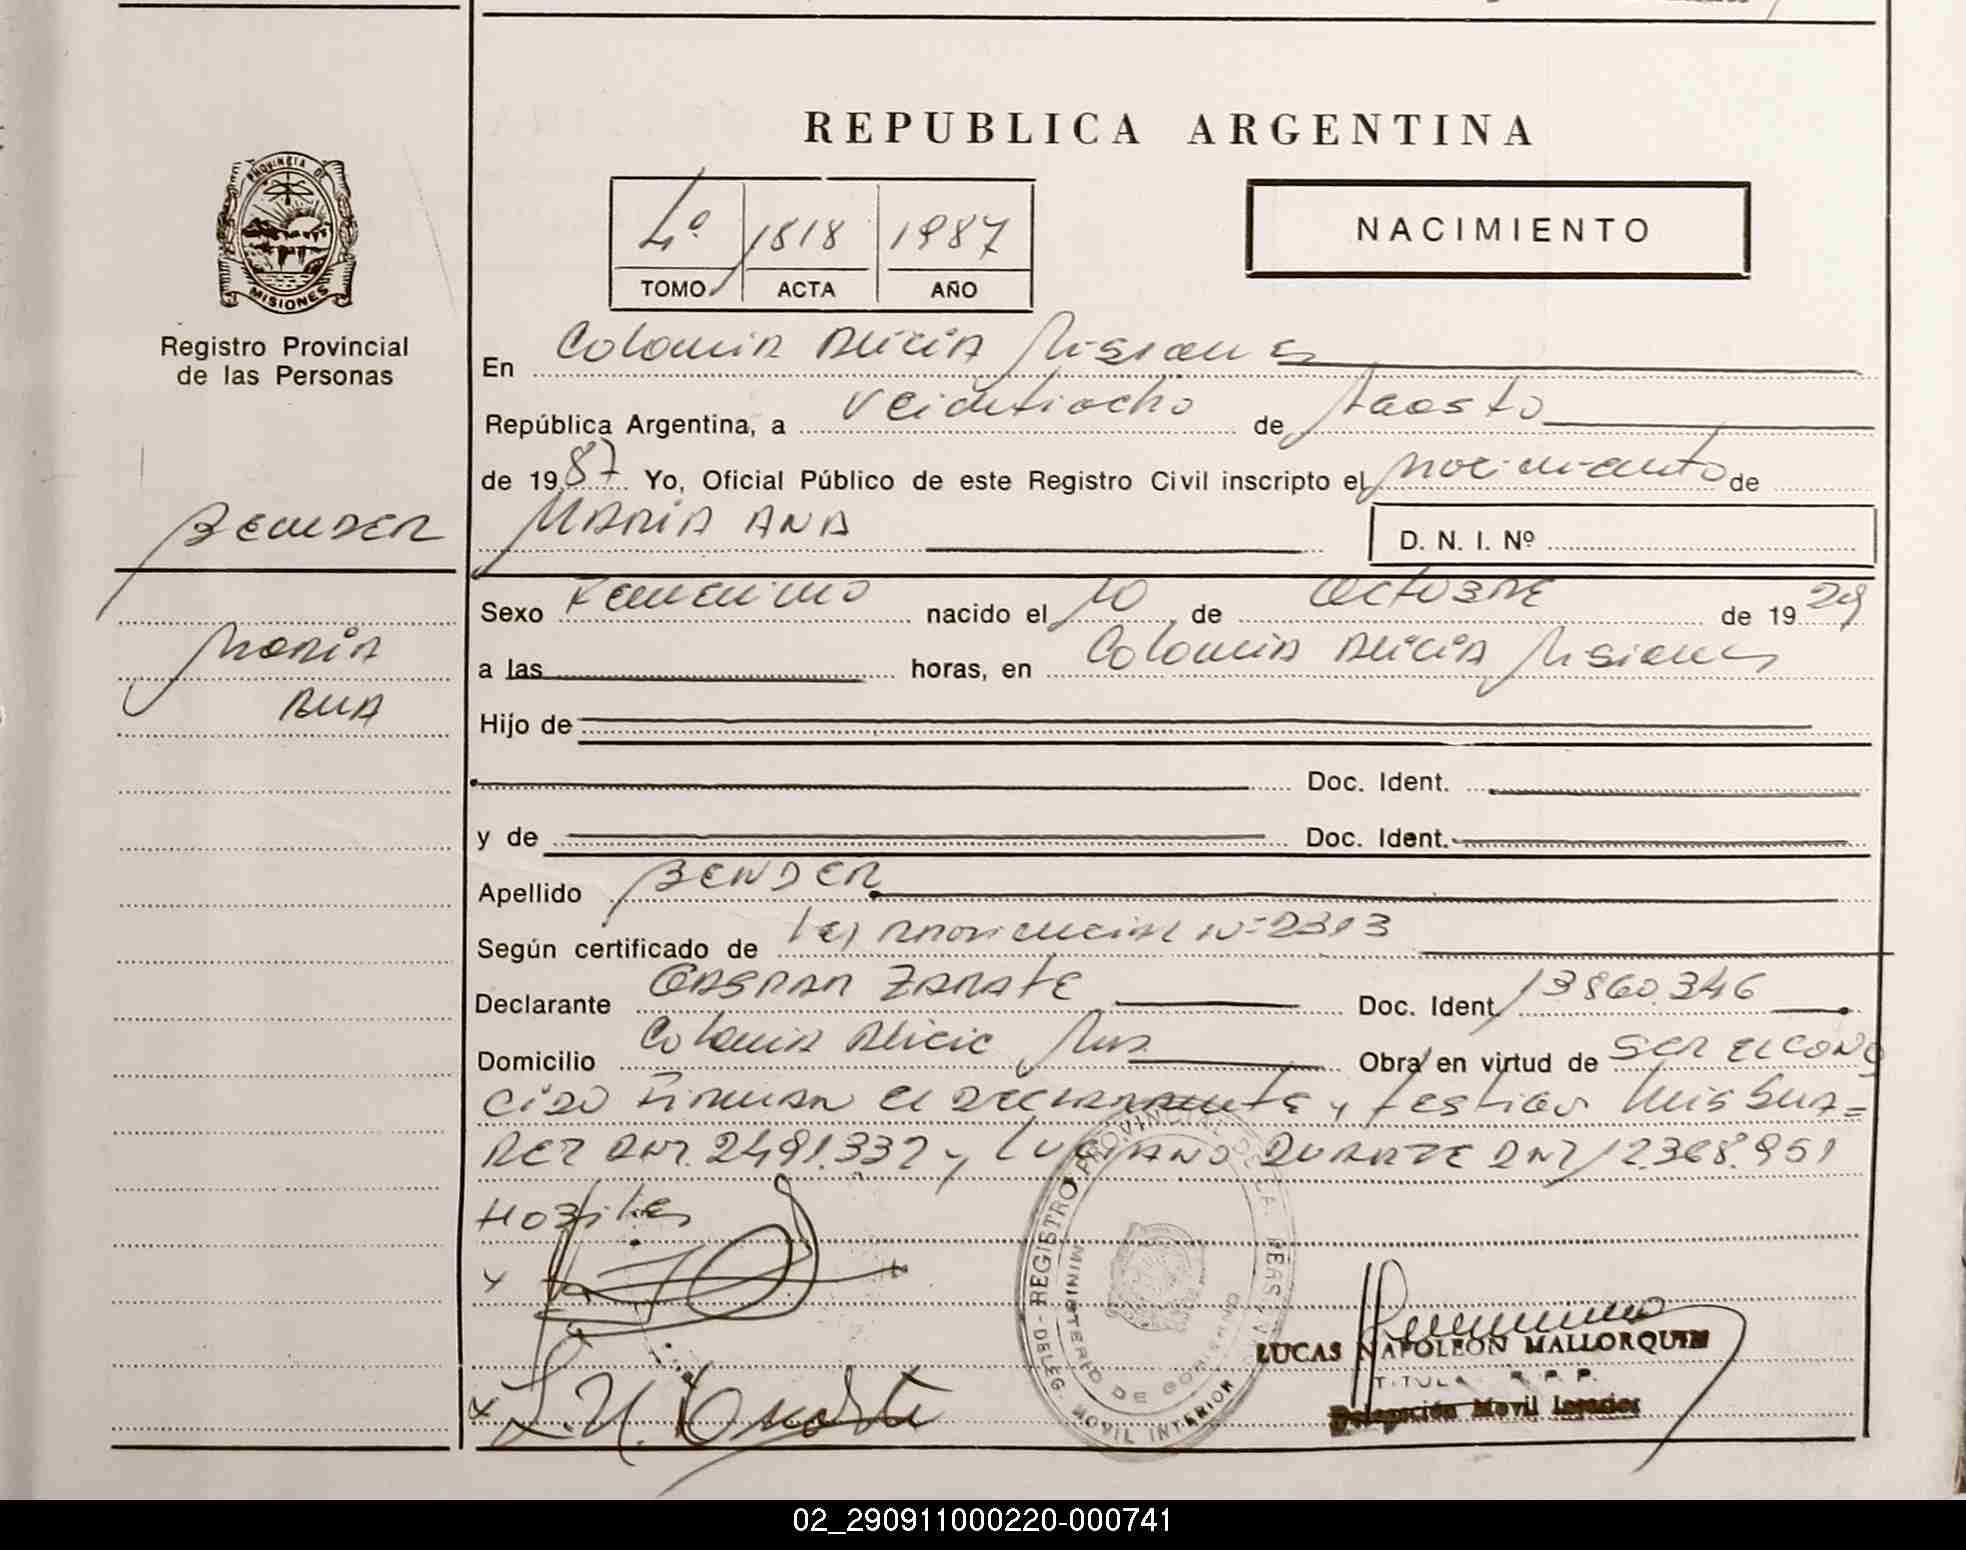 REPUBLICA ARGENTINA
4º 1818 1987
TOMO ACTA AÑO
NACIMIENTO
PROVINCIA DE
MISIONES
Registro Provincial
de las Personas
BENDER
MARIA
ANA
En Colonia Alicia Misiones
República Argentina, a veintiocho de Agosto
de 1987 Yo, Oficial Público de este Registro Civil inscripto el nacimiento de
MARIA ANA D. N. I. Nº
Sexo Femenino nacido el 10 de OCTUBRE de 1929
a las horas, en Colonia Alicia Misiones
Hijo de
Doc. Ident.
y de Doc. Ident.
Apellido BENDER
Según certificado de Ley Provincial Nº 2313
Declarante GASPAR ZARATE Doc. Ident. 13860.346
Domicilio Colonia Alicia Mns Obra en virtud de SER EL CONO
CIDO Firman el Declarante y testigos Luis SUA=
REZ DNI. 2491.332 y LUCIANO DUARTE DNI 12.368.951
Habiles
REGISTRO PROVINCIAL DE LAS PERSONAS
MINISTERIO DE GOBIERNO
DELEG. MOVIL INTERIOR
LUCAS NAPOLEON MALLORQUIN
TITULAR R. P. P.
Delegación Movil Interior
02_290911000220-000741